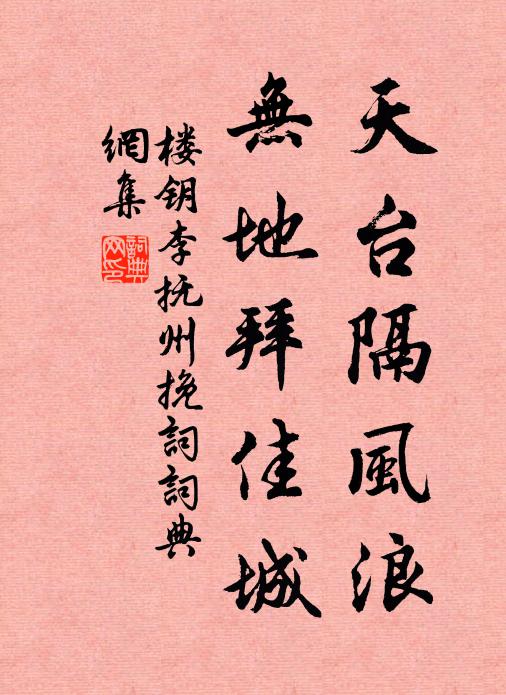 天台隔風浪
無地拜佳城
楼钥李抚州挽詞詞典
網集
詞典
网印